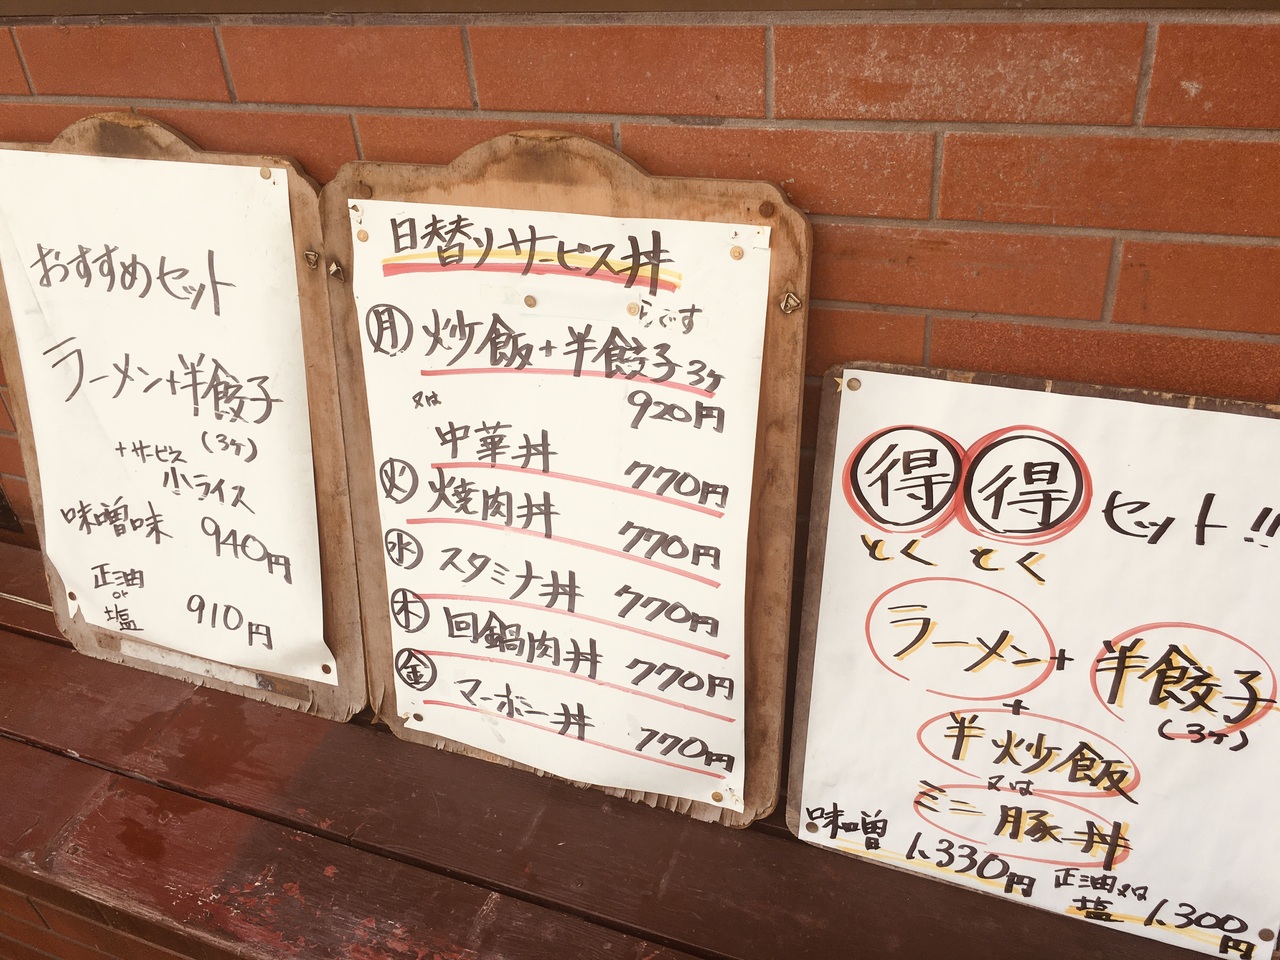 おすすめセット
ラーメン+半餃子
(3ヶ)
+サービス
小ライス
味噌味 940円
正油
or
塩 910円
日替りサービス丼
らです
㊊ 炒飯+半餃子3ヶ
又は 920円
中華丼 770円
㊋ 焼肉丼 770円
㊌ スタミナ丼 770円
㊍ 回鍋肉丼 770円
㊎ マーボー丼 770円
得 得 セット!!
とく とく
ラーメン+半餃子
(3ヶ)
+
半炒飯
又は
ミニ豚丼
味噌 1,330円
正油又は
塩 1,300円